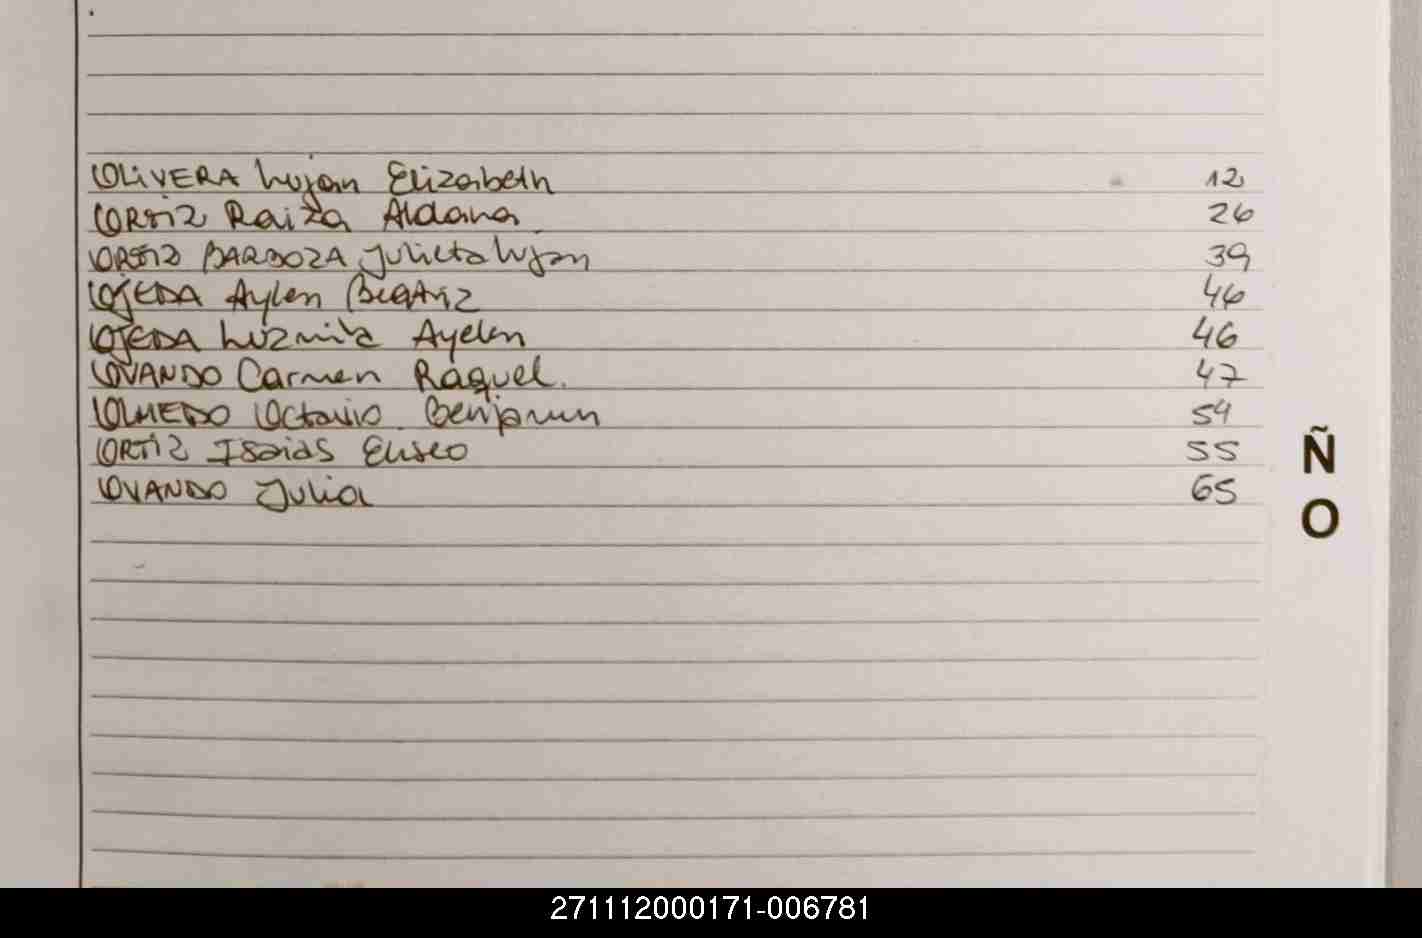 OLIVERA Lujan Elizabeth 12
ORTIZ Raiza Aldana 26
ORTIZ BARBOZA Julieta Lujan 39
OJEDA Aylen Beatriz 46
OJEDA Luzmila Ayelen 46
OVANDO Carmen Raquel. 47
OLMEDO Octavio Benjamin 54
ORTIZ Isaias Eliseo 55
OVANDO Julia 65
Ñ
O
271112000171-006781